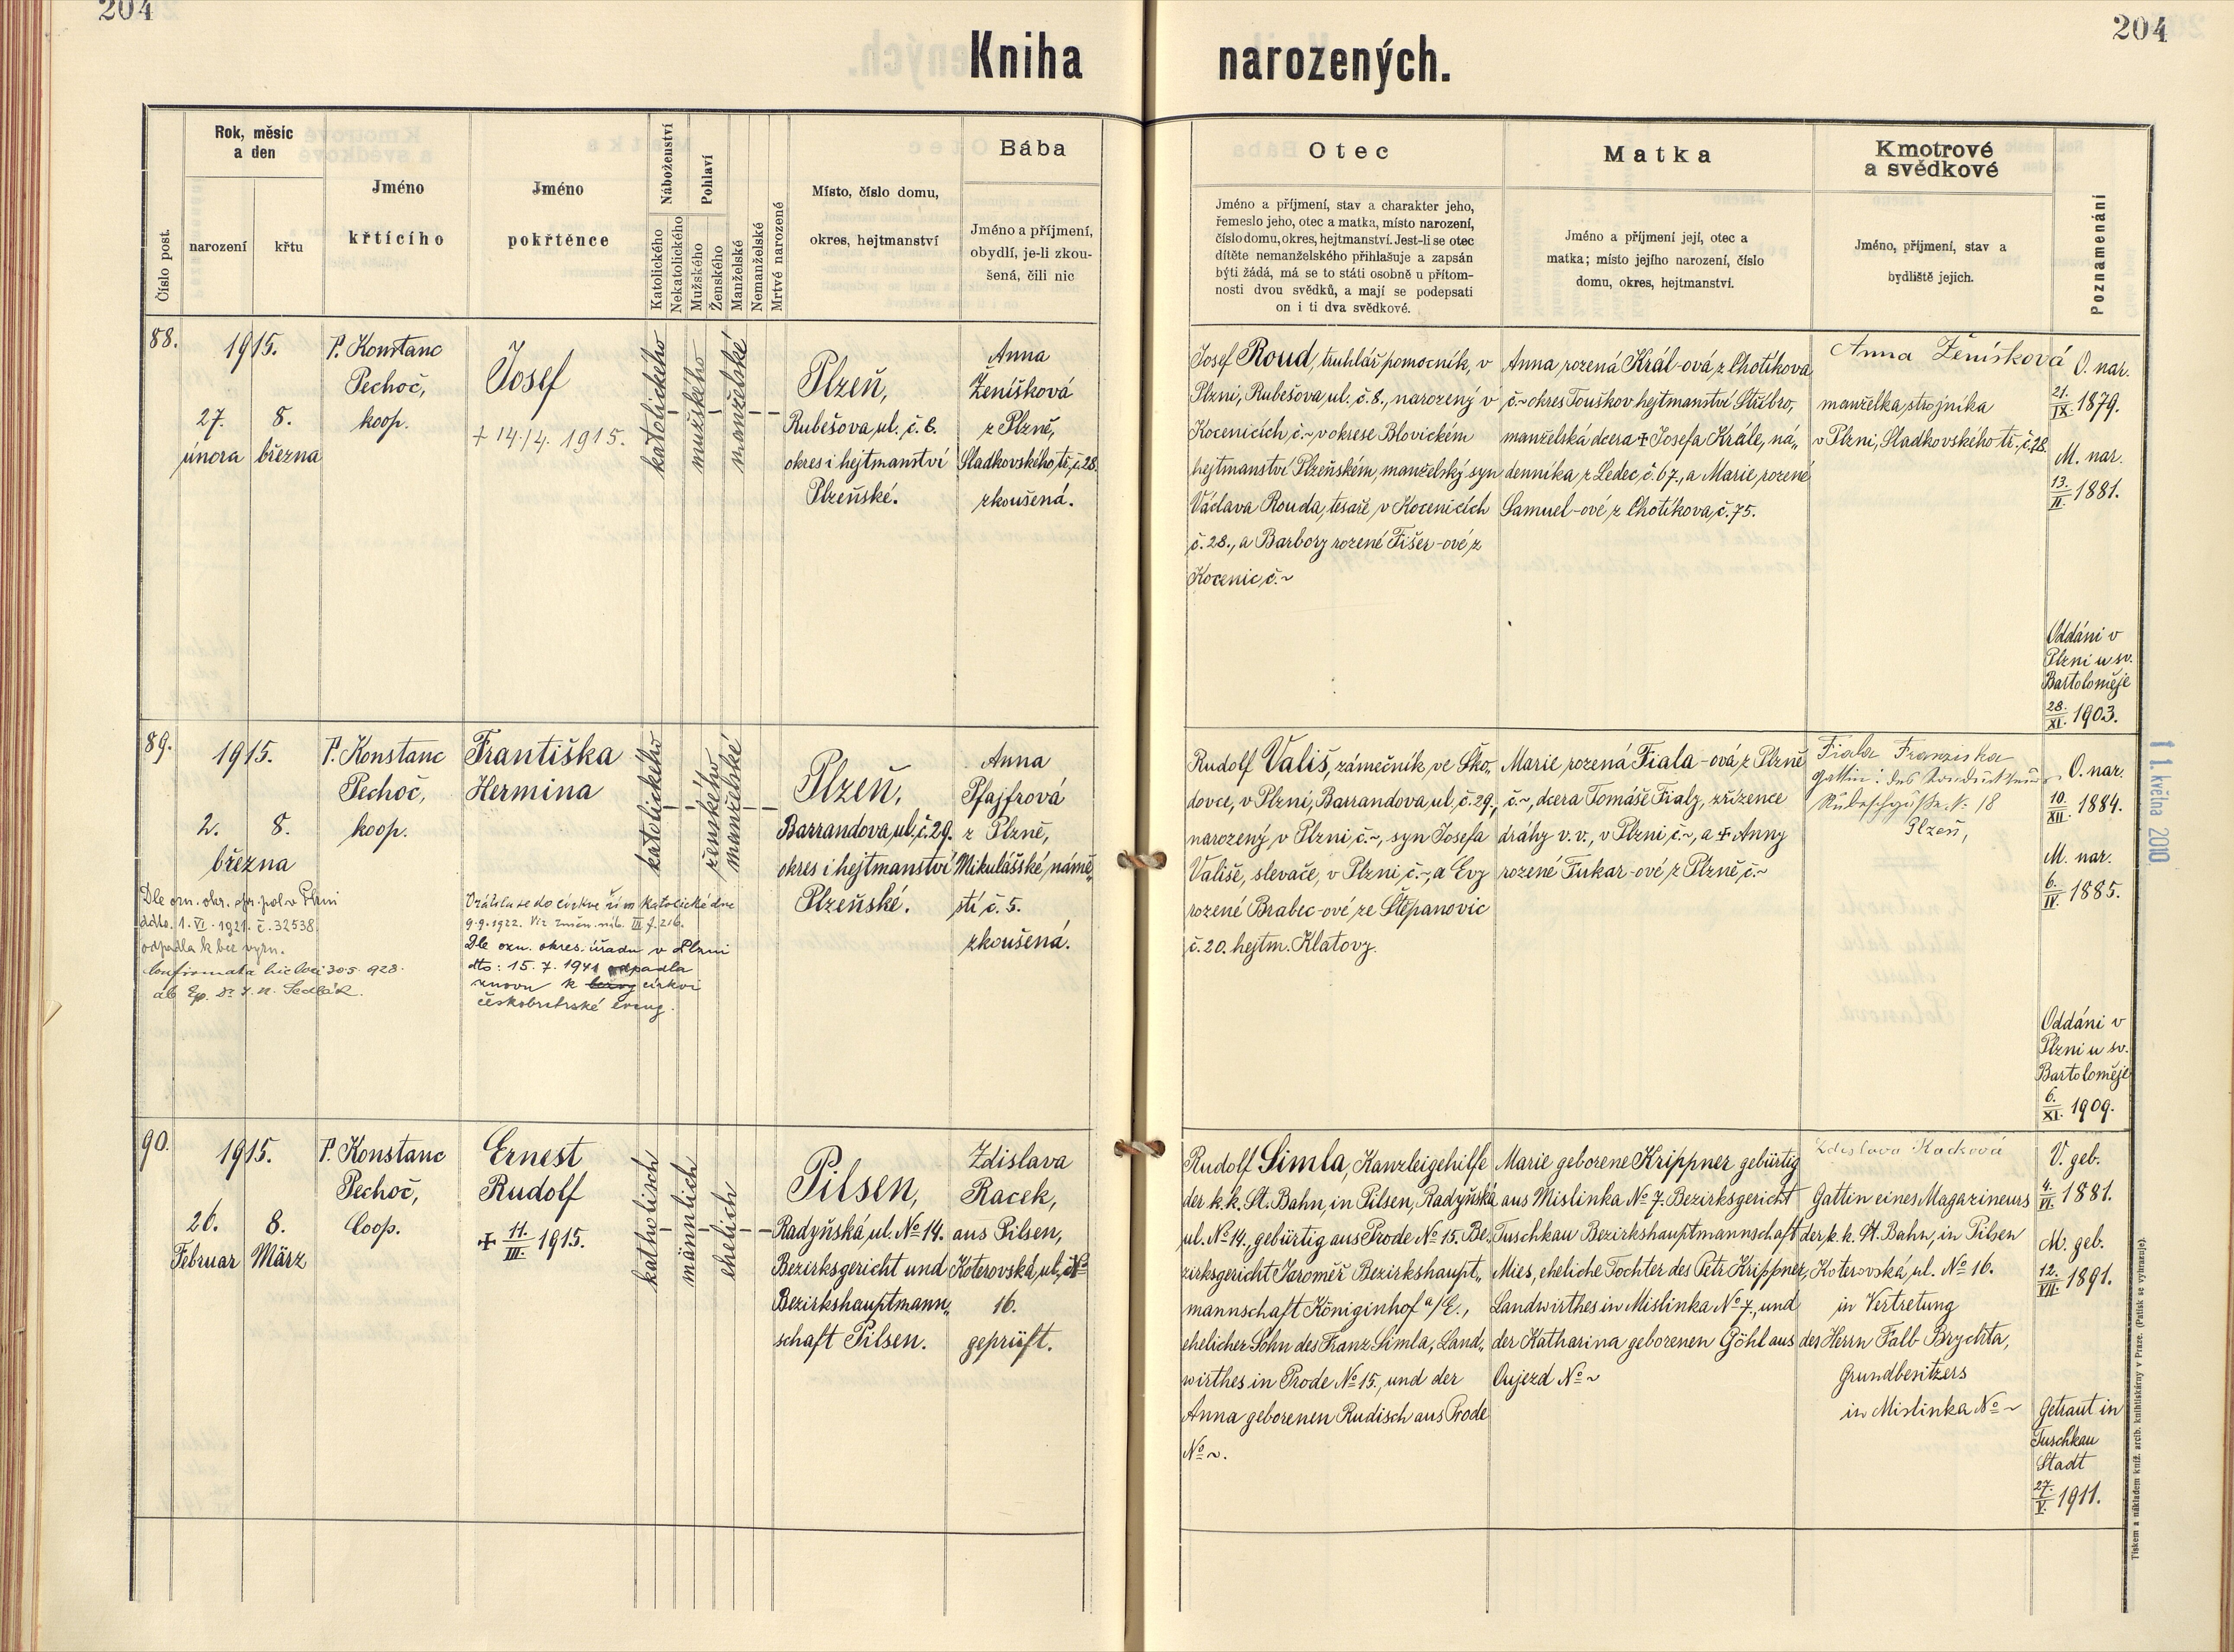 204
204
Kniha
narozených.
Číslo post.
Rok, měsíc
a den
narození
křtu
Jméno
křtícího
Jméno
pokřtěnce
Náboženství
Katolického
Nekatolického
Pohlaví
Mužského
Ženského
Manželské
Nemanželské
Mrtvě narozené
Místo, číslo domu,
okres, hejtmanství
Bába
Jméno a příjmení,
obydlí, je-li zkou-
šená, čili nic
Otec
Jméno a příjmení, stav a charakter jeho,
řemeslo jeho, otec a matka, místo narození,
číslo domu, okres, hejtmanství. Jest-li se otec
dítěte nemanželského přihlašuje a zapsán
býti žádá, má se to státi osobně u přítom-
nosti dvou svědků, a mají se podepsati
on i ti dva svědkové.
Matka
Jméno a příjmení její, otec a
matka; místo jejího narození, číslo
domu, okres, hejtmanství.
Kmotrové
a svědkové
Jméno, příjmení, stav a
bydliště jejich.
Poznamenání
88.
1915.
27.
února
8.
března
P. Konstanc
Pechoč,
koop.
Josef
+ 14./4. 1915.
katolického
mužského
manželské
Plzeň,
Rubešova ul. č. 8.
okres i hejtmanství
Plzeňské.
Anna
Ženíšková
z Plzně,
Sladkovského tř. č. 28.
zkoušená.
Josef Roud, truhlář pomocník, v
Plzni, Rubešova ul. č. 8., narozený v
Kocenicích, č. ~ v okrese Blovickém
hejtmanství Plzeňském, manželský syn
Václava Rouda, tesaře v Kocenicích
č. 28., a Barbory rozené Fišer-ové z
Kocenic, č. ~
Anna rozená Král-ová z Chotíkova
č. ~ okres Touškov hejtmanství Stříbro,
manželská dcera + Josefa Krále, ná„
denníka z Ledec č. 67., a Marie rozené
Samuel-ové z Chotíkova č. 75.
Anna Ženíšková
manželka strojníka
v Plzni, Sladkovského tř. č. 28.
O. nar.
21./IX. 1879.
M. nar.
13./II. 1881.
Oddáni v
Plzni u sv.
Bartoloměje
28./XI. 1903.
89.
1915.
2.
8.
března
P. Konstanc
Pechoč,
koop.
Františka
Hermina
katolického
ženského
manželské
Plzeň,
Barrandova ul. č. 29.
okres i hejtmanství
Plzeňské.
Anna
Pfajfrová
z Plzně,
Mikulášské námě„
stí č. 5.
zkoušená.
Dle ozn. okr. spr. pol. v Plzni
ddto. 1. VI. 1921. č. 32538
odpadla k bez vyzn.
Confirmata hic loci 30.5. 928.
ab Ep. Dr. Sedlák.
Vrátila se do církve řím katolické dne
9.9.1922. Viz změn. náb. III f. 216.
Dle ozn. okres. úřadu v Plzni
dto: 15. 7. 1941 odpadla
znovu k církvi
českobratrské evang.
Rudolf Vališ, zámečník ve Ško„
dovce, v Plzni, Barrandova ul. č. 29.,
narozený v Plzni č. ~, syn Josefa
Vališe, slevače, v Plzni, č. ~, a Evy
rozené Brabec-ové ze Štěpanovic
č. 20. hejtm. Klatovy.
Marie rozená Fiala-ová, z Plzně
č. ~, dcera Tomáše Fialy, zřízence
dráhy v. v., v Plzni č. ~, a + Anny
rozené Fukar-ové z Plzně č. ~
Fiala Franziska
Gattin des Kondukteurs
No 18
Plzeň,
O. nar.
10./XII. 1884.
M. nar.
6./IV. 1885.
Oddáni v
Plzni u sv.
Bartoloměje
6./XI. 1909.
11. května 2010
90.
1915.
26.
Februar
8.
März
P. Konstanc
Pechoč,
Coop.
Ernest
Rudolf
+ 11./III. 1915.
katholisch
männlich
ehelich
Pilsen,
Radyňská ul. No 14.
Bezirksgericht und
Bezirkshauptmann„
schaft Pilsen.
Zdislava
Racek,
aus Pilsen,
Koterovská ul. No
16.
geprüft.
Rudolf Simla, Kanzleigehilfe
der k. k. St. Bahn, in Pilsen, Radyňská
ul. No 14., gebürtig aus Prode No 15. Be„
zirksgericht Jaroměř Bezirkshaupt„
mannschaft Königinhof a/E.,
ehelicher Sohn des Franz Simla, Land„
wirthes in Prode No 15., und der
Anna geborenen Rudisch aus Prode
No ~.
Marie geborene Krippner gebürtig
aus Mislinka No 7. Bezirksgericht
Tuschkau Bezirkshauptmannschaft
Mies, eheliche Tochter des Petr Krippner,
Landwirthes in Mislinka No 7., und
der Katharina geborenen Göhl aus
Oujezd No ~
Zdislava Racková
Gattin eines Magazineurs
der k. k. St. Bahn, in Pilsen
Koterovská ul. No 16.
in Vertretung
des Herrn Falb Brychta,
Grundbesitzers
in Mislinka No ~
V. geb.
4./VI. 1881.
M. geb.
12./VII. 1891.
Getraut in
Tuschkau
Stadt
27./V. 1911.
Tiskem a nákladem kníž. arcib. knihtiskárny v Praze. (Patisk se vyhrazuje).